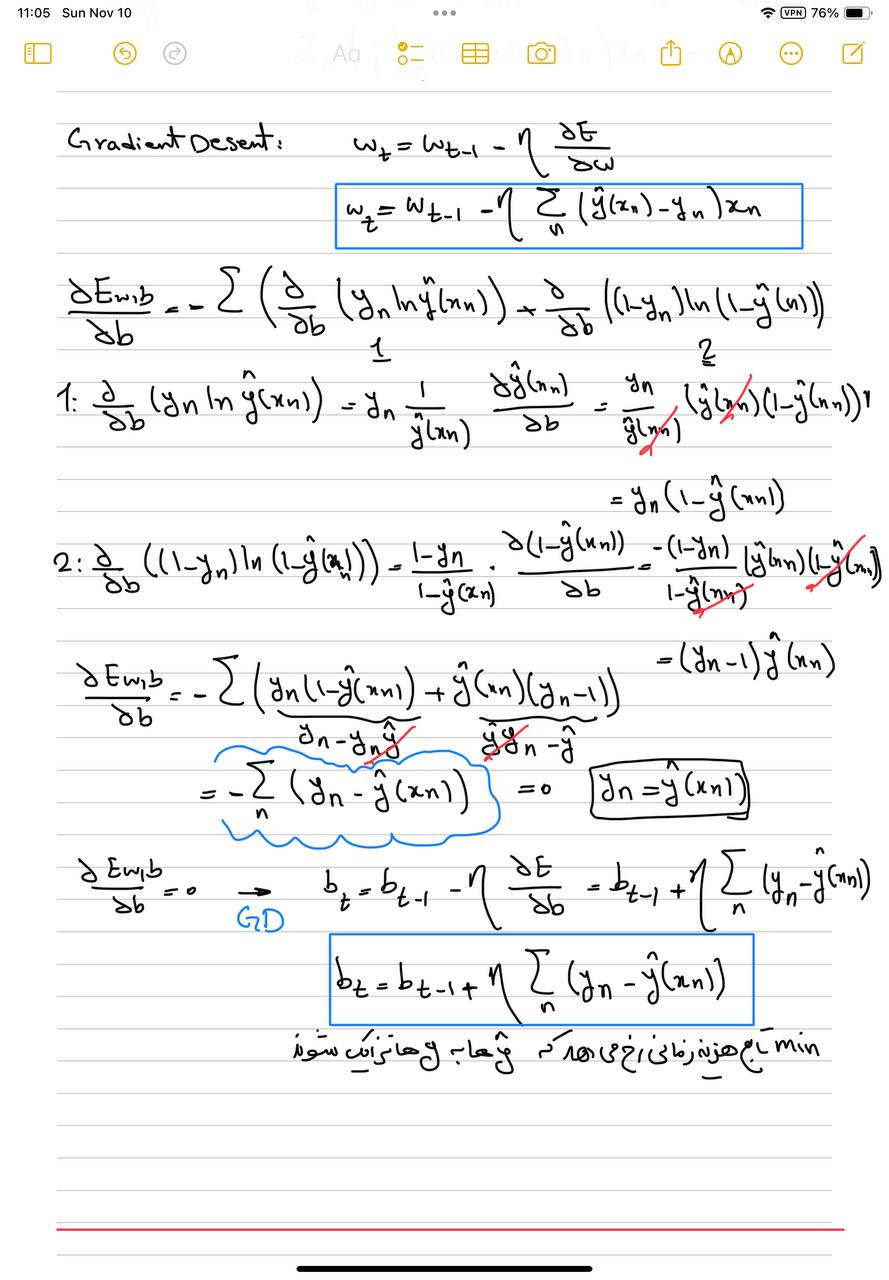 11:05 Sun Nov 10 VPN 76%
Aa
Gradient Desent: w_t = w_{t-1} - η ∂E/∂w
w_t = w_{t-1} - η Σ_n (ŷ(x_n) - y_n) x_n
∂E_{w,b}/∂b = - Σ (∂/∂b (y_n ln ŷ(x_n)) + ∂/∂b ((1-y_n) ln (1-ŷ(n)))
1 2
1: ∂/∂b (y_n ln ŷ(x_n)) = y_n 1/ŷ(x_n) ∂ŷ(x_n)/∂b = y_n/ŷ(x_n) (ŷ(x_n)(1-ŷ(x_n))) 
= y_n (1-ŷ(x_n))
2: ∂/∂b ((1-y_n) ln (1-ŷ(x_n))) = 1-y_n/1-ŷ(x_n) . ∂(1-ŷ(x_n))/∂b = -(1-y_n)/1-ŷ(x_n) (ŷ(x_n)(1-ŷ(x_n))
= (y_n-1) ŷ(x_n)
∂E_{w,b}/∂b = - Σ (y_n(1-ŷ(x_n)) + ŷ(x_n)(y_n-1))
y_n - y_n ŷ ŷ y_n - ŷ
= - Σ_n (y_n - ŷ(x_n)) = 0 y_n = ŷ(x_n)
∂E_{w,b}/∂b = 0 → b_t = b_{t-1} - η ∂E/∂b = b_{t-1} + η Σ_n (y_n - ŷ(x_n))
GD
b_t = b_{t-1} + η Σ_n (y_n - ŷ(x_n))
min تابع هزینه زمانی رخ می دهد که ŷ ها به y ها نزدیک شوند